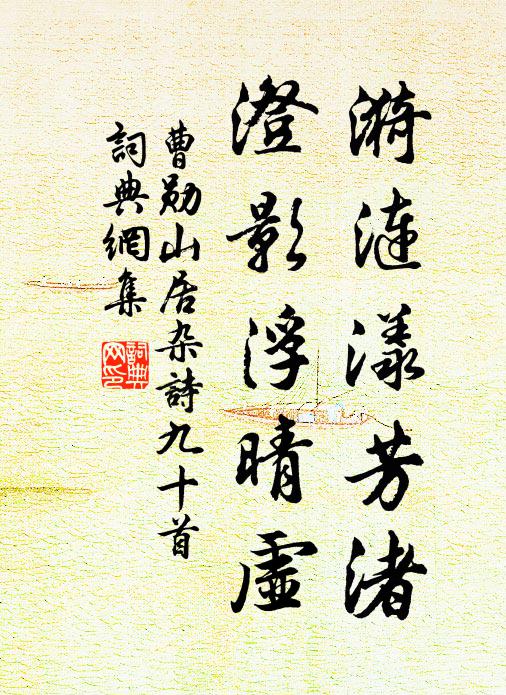 漪漣漾芳渚
澄影浮晴虛
曹勛山居杂詩九十首
詞典網集
詞典
网印